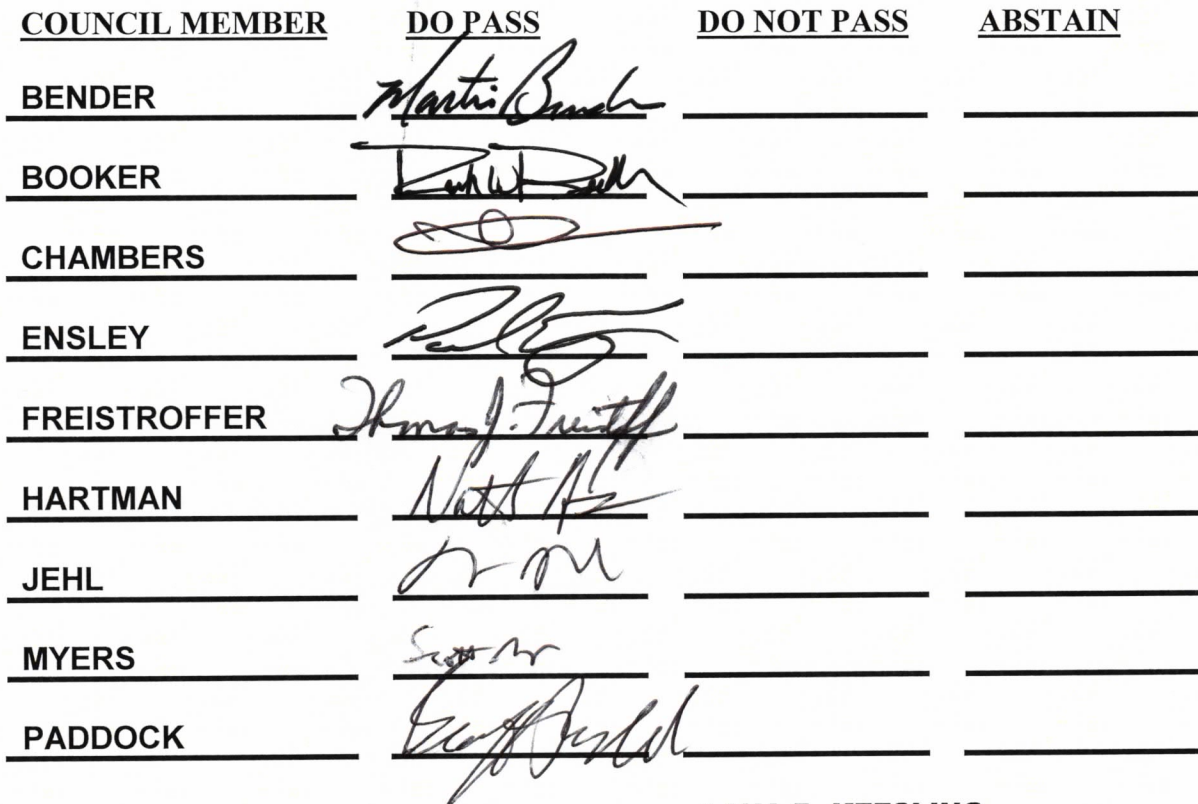 COUNCIL MEMBER DO PASS DO NOT PASS ABSTAIN
BENDER Martin Bender
BOOKER
CHAMBERS
ENSLEY Paul
FREISTROFFER Thomas J. Freistroffer
HARTMAN
JEHL
MYERS Scott
PADDOCK Geoff Paddock